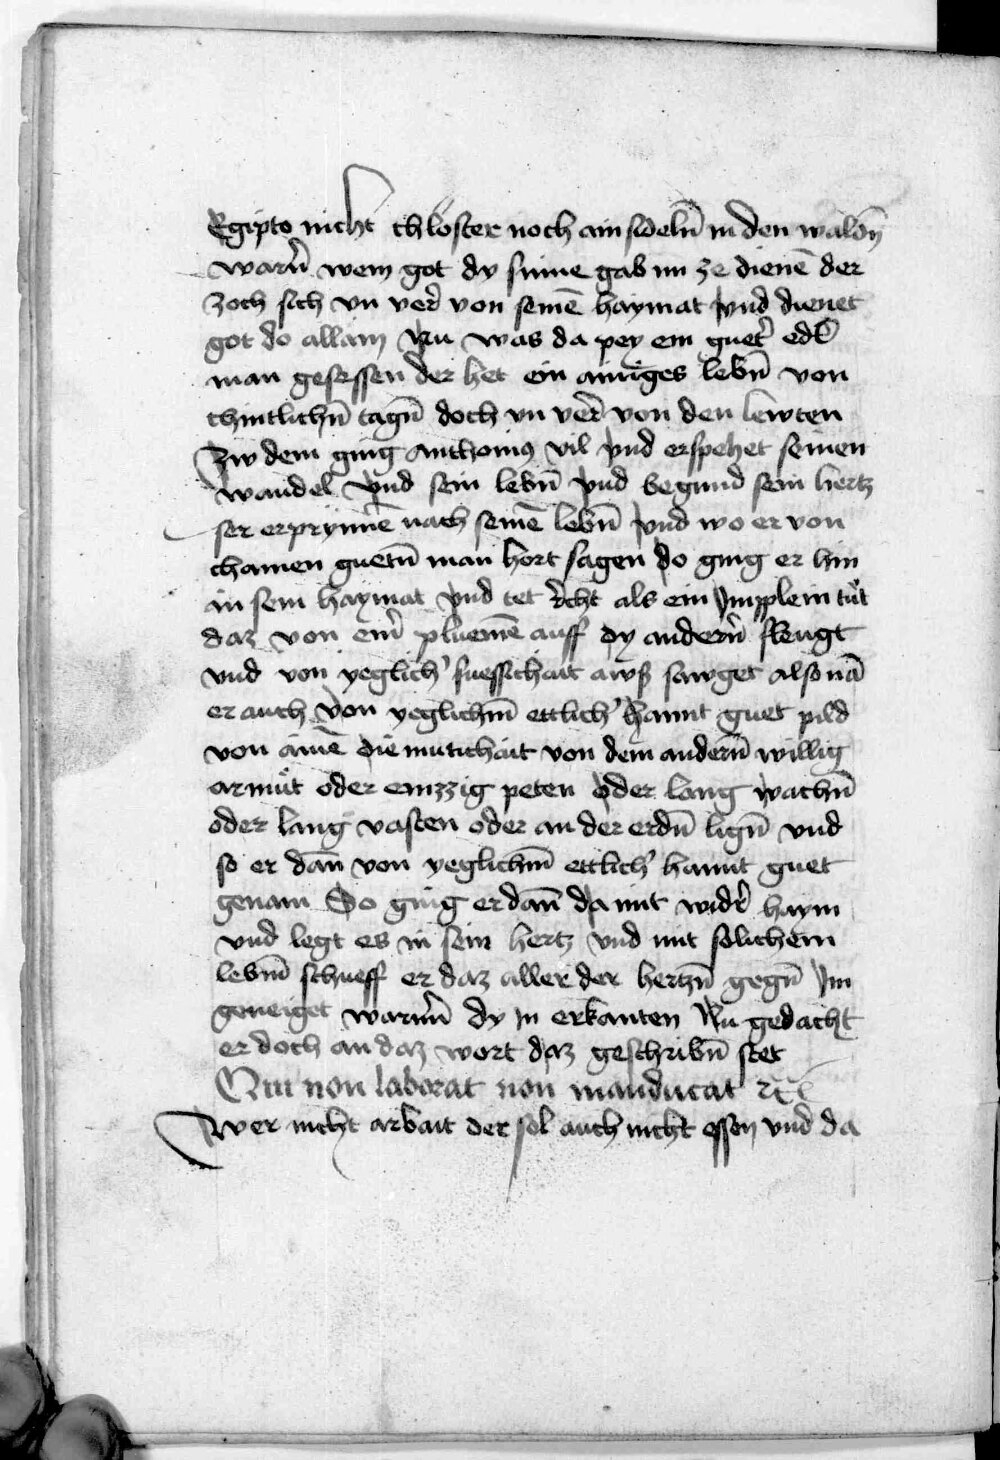 Egipto nicht chlöster noch ainsidelñ in den waldñ
warñ wem got dy sinne gab im ze dienē der
zoch sich vn verꝛ von seinē haymat vnd dienet
got do allain Nu was da pey ein gueter edl
man gesessen der het ein ainigs lebñ von
chintlichñ tagñ doch vn verꝛ von den lewten
Zw dem ging Anthonius vil vnd erspehet seinen
wandel vnd sein lebñ vnd begund sein hertz
ser erprynnē nach seinē lebñ vnd wo er von
chainen guetñ man hort sagen do ging er hin
in sein haymat vnd tet recht als ein Impplein tuͤt
daz von eim̄ pluemē auff dy andernn̄ flewgt
vnd von yeglich' suessichait awß sawget also nā
er auch von yeglichm̄ ettlich' hannt guet pild
von ainē diemutichait von dem andernn̄ willig
armuͤt oder emzzig peten oder lang wachñ
oder lang vasten oder an der erdñ ligñ vnd
so er dañ von yeglichm̄ ettlich' hannt guet
genam So ging er dañ da mit wider haym
vnd legt es in sein hertz vnd mit solichem
lebm̄ schueff er daz aller der hertzñ gegñ Im
geneiget warnn̄ dy in erkanten Nu gedacht
er doch an daz wort daz geschribñ stet
Qui non laborat non manducat ⁊cͤ
Wer nicht arbait der sol auch nicht essen vnd da